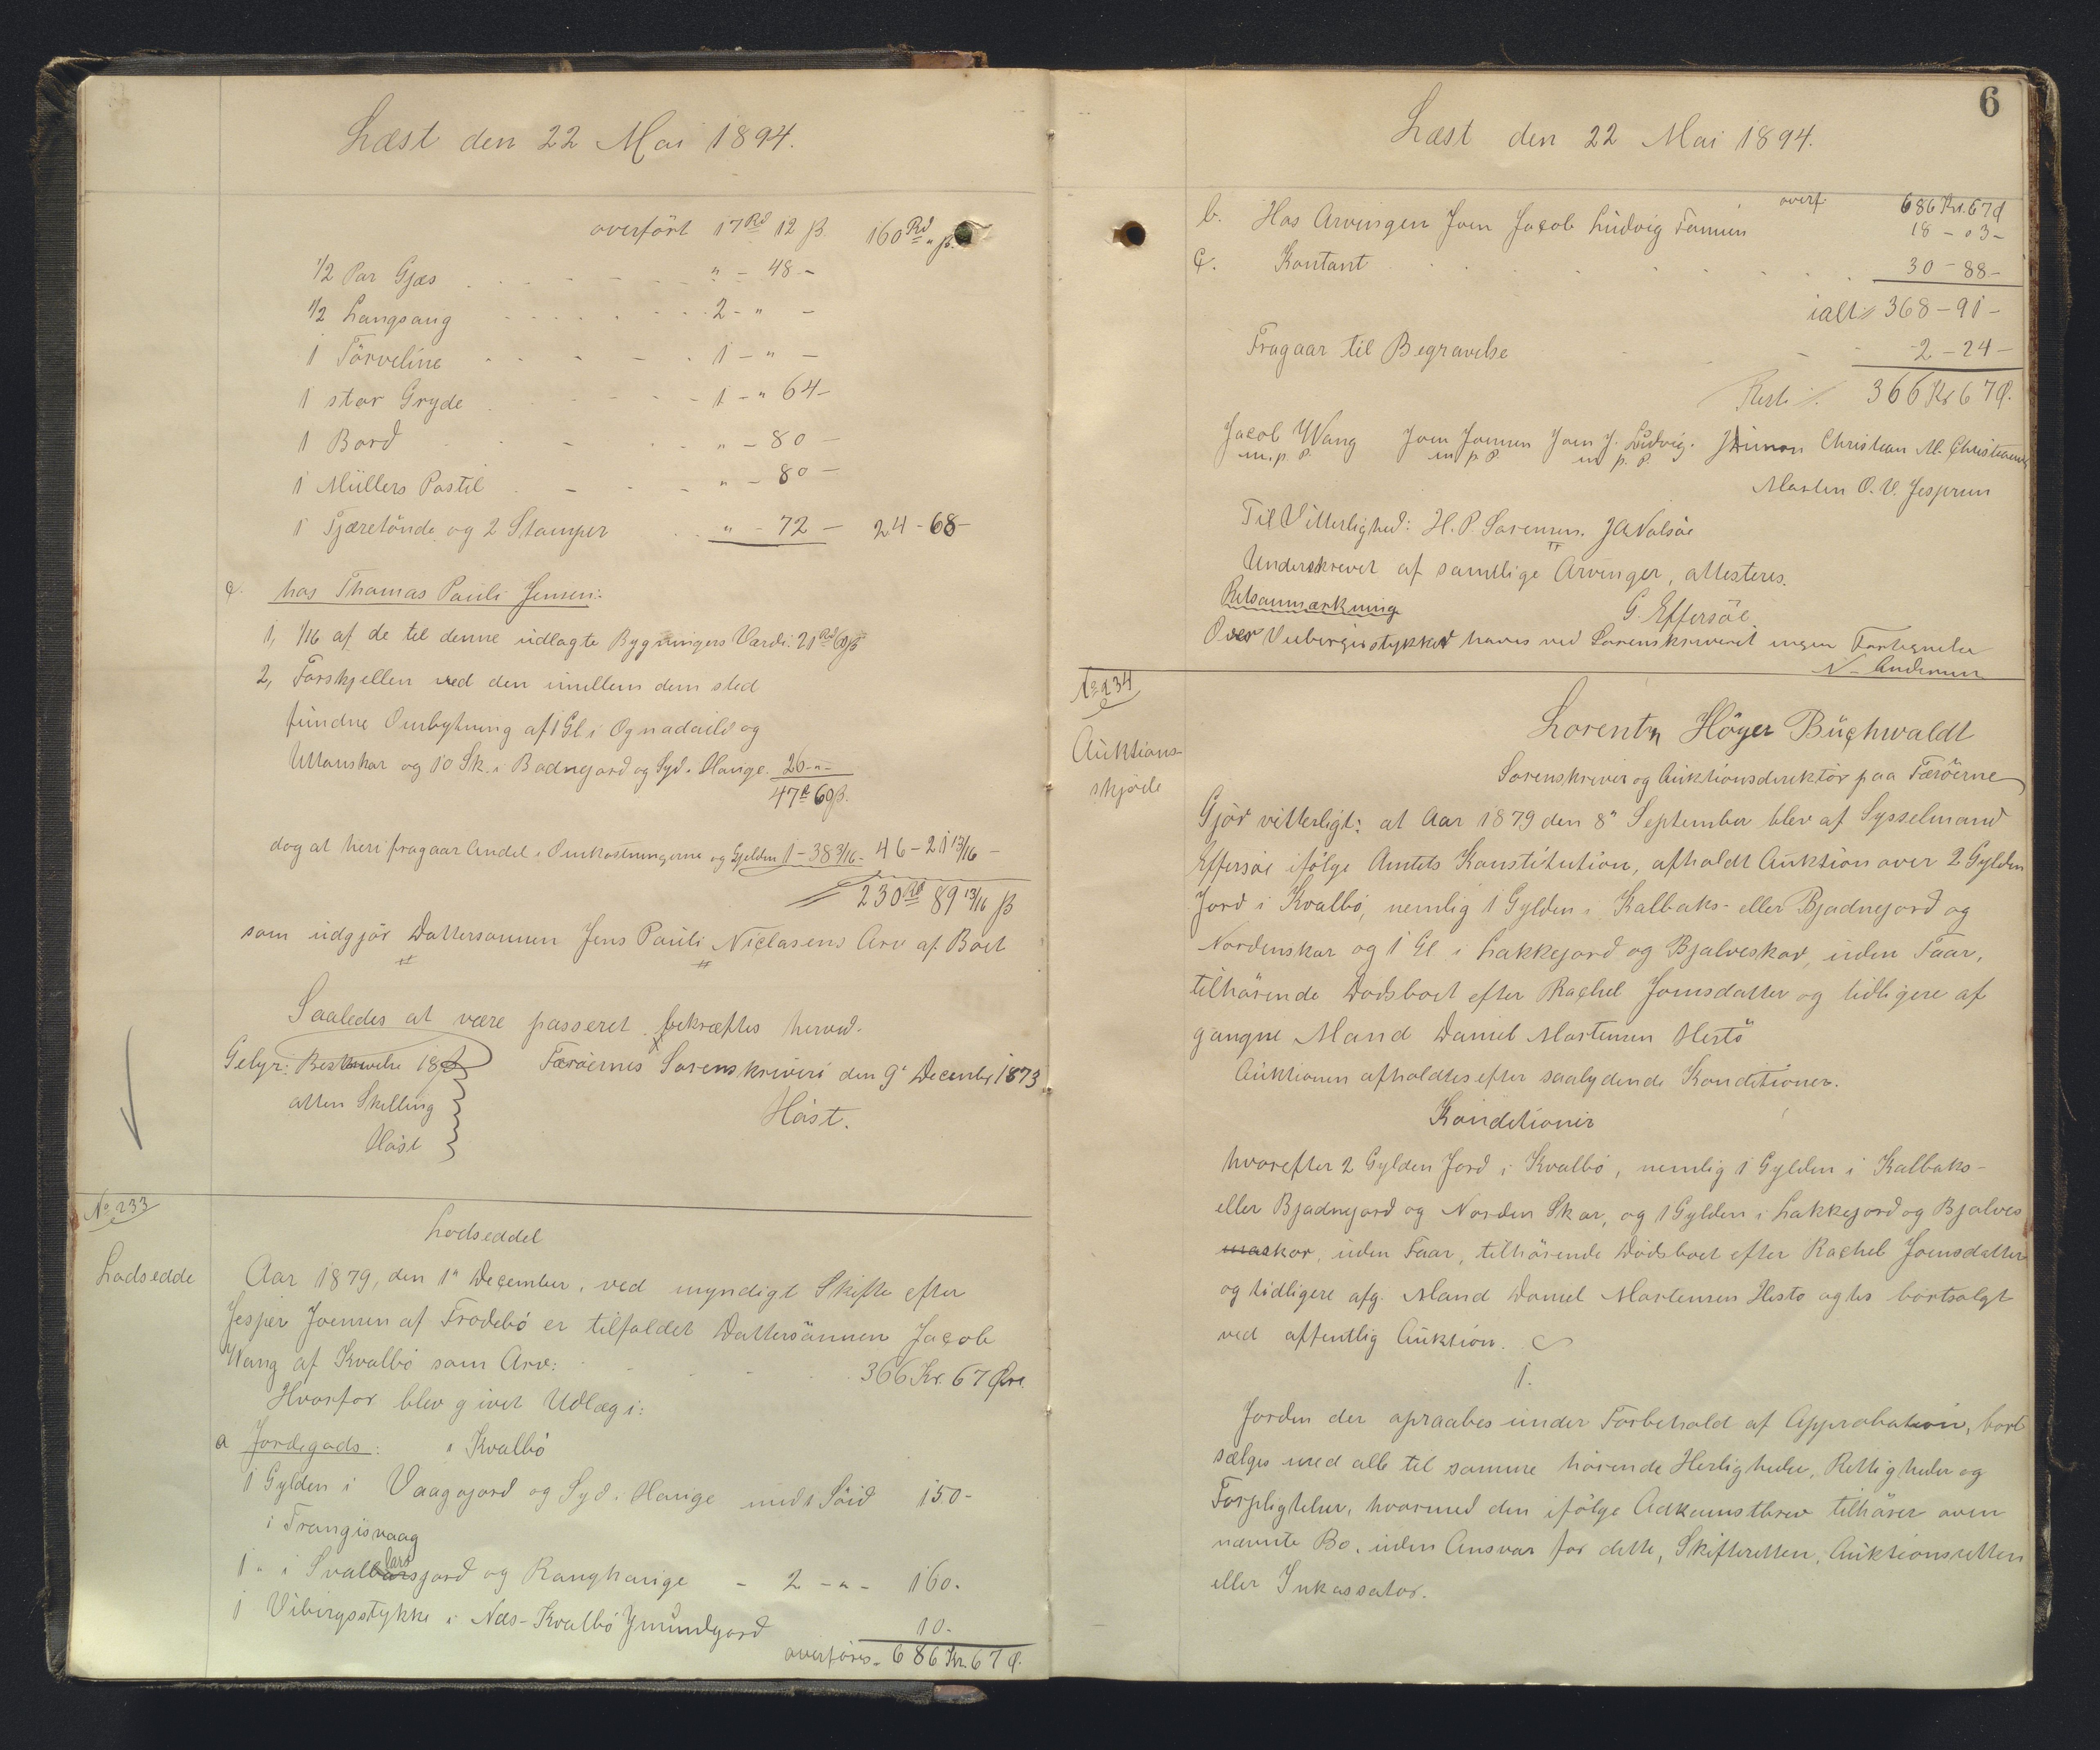 Læst den 22 Mai 1894.
overført 17 Rd 12 ß. 160 Rd " ß.
1/2 Par Gjæs " - 48 -
1/2 Langsang 2 - " -
1 Törveline 1 - " -
1 stor Gryde 1 - " 64 -
1 Bord " - 80 -
1 Müllers Postil " - 80 -
1 Tjæretönde og 2 Stamper " - 72 - 24 - 68 -
c. hos Thomas Pauli Jensen:
1, 1/16 af de til denne udlagte Bygningers Værdi: 21 Rd 60 ß
2, Forskjellen ved den imellem dem sted
fundne Ombytning af 1 Gl i Ognadaild og
Uttanskar og 10 Sk. i Badnegjord og Syd i Hauge. 26 - " -
47 R 60 ß.
dog at heri fragaar Andel i Omkostningerne og Gjelden 1 - 38 3/16 - 46 - 21 13/16 -
230 Rd 89 13/16 ß
som udgjör Dattersønnen Jens Pauli Niclasens Arv af Boet
Saaledes at være passeret bekræftes herved.
Gebyr: Beskrivelse 18 ß Færöernes Sorenskriveri den 9 December 1873
atten Skilling Höst.
Höst
No 233
Lodseddel
Lodsedde Aar 1879, den 1 December, ved myndigt Skifte efter
Jesper Joensen af Frodebö er tilfaldet Dattersönnen Jacob
Wang af Kvalbö som Arv: 366 Kr. 67 Øre.
Hvorfor blev givet Udlæg i:
a Jordegods: i Kvalbö
1 Gylden i Vaagagjord og Syd i Hauge med 1 Söid 150 -
i Trangisvaag
1 " i Svalbarsjord og Ranghauge - 2 - " - 160.
1 Vibirgsstykke i Næs-Kvalbö Jmundgjord 10 -
overføres 686 Kr. 67 Ø.
6
Læst den 22 Mai 1894.
overf. 686 Kr. 67 Ø
b. Hos Arvingen Joen Jacob Ludvig Joensen 18 - 03 -
c. Kontant 30 - 88 -
ialt 368 - 91 -
Fragaar til Begravelse 2 - 24 -
Rest 366 Kr 67 Ø.
Jacob Wang Joen Joensen Joen J. Ludvig. Simon Christian M. Christiansen
m. p. P. m. p. P. m. p. P.
Morten O. V. Jespersen
Til Vitterlighed: H. P. Sørensen. J A Nolsöe
Underskrevet af samtlige Arvinger, attesteres.
Retsanmærkning G. Effersöe
Over Veebirgisstykket haves ved Sorenskriveriet ingen Fortegnelse
N. Andersen
No 234
Auktions-
skjøde
Lorentz Höyer Büchwaldt
Sorenskriver og Auktionsdirektör paa Færöerne
Gjör vitterligt: at Aar 1879 den 8 September blev af Sysselmand
Effersöe ifölge Amtets Konstitution, afholdt Auktion over 2 Gylden
Jord i Kvalbö, nemlig 1 Gylden i Kalbaks- eller Bjadnejord og
Nordenskar og 1 Gl i Lakkejord og Bjalveskor, uden Faar,
tilhörende Dødsboet efter Rachel Joensdatter og tidligere af
gangne Mand Daniel Mortensen Hestö
Auktionen afholdtes efter saalydende Konditioner.
Konditioner
hvorefter 2 Gylden Jord i Kvalbö, nemlig 1 Gylden i Kalbaks-
eller Bjadnejord og Norden Skar, og 1 Gylden i Lakkejord og Bjalves
kor, uden Faar, tilhörende Dödsboet efter Rachel Joensdatter
og tidligere afg. Mand Daniel Mortensen Hestö agtes bortsolgt
ved offentlig Auktion.
1.
Jorden der opraabes under Forbehold af Approbation, bort
sælges med alle til samme hörende Herligheder, Rettigheder og
Forpligtelser, hvormed den ifölge Adkomstbrev tilhörer oven
nævnte Bo, uden Ansvar for dette, Skifteretten, Auktionsretten
eller Inkassator.